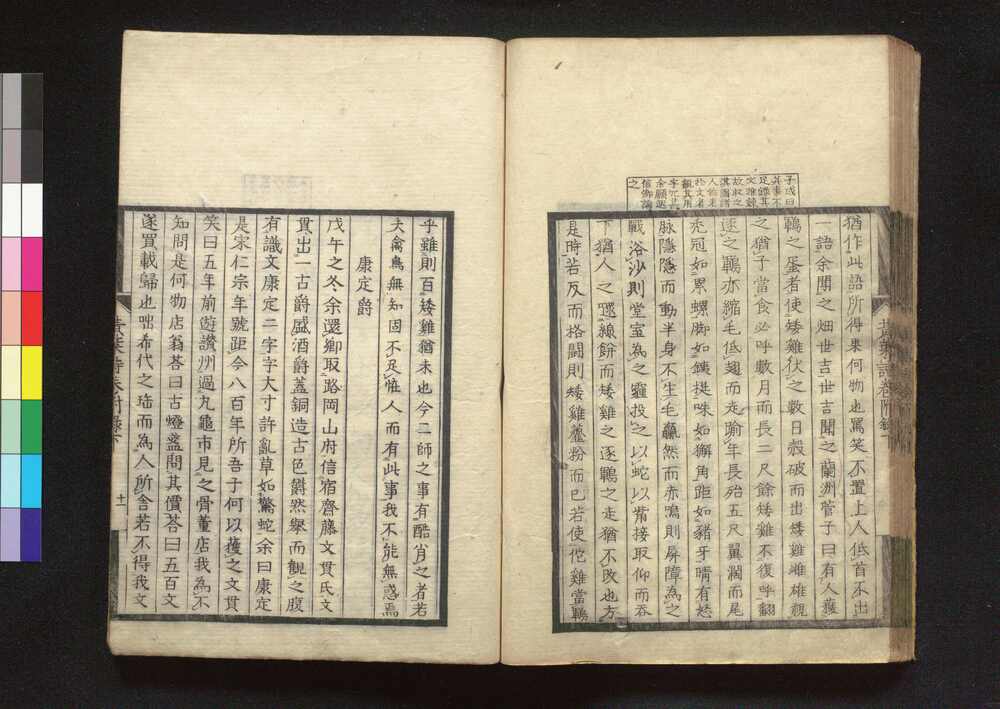 子成曰
其事不
足錄其
文雅馴
故取之
之
猶作此語所得果何物也罵笑不置上人低首不出
一語余聞之畑世吉世吉聞之蘭洲菅子曰有人獲
鶤之蛋者使矮雞伏之數日殼破而出矮雞雌雄視
之猶子當食必呼數月而長二尺餘矮雞不復呼翻
逐之鶤亦縮毛低翅而走踰年長殆五尺翼濶而尾
禿冠如累螺脚如鐵提咮如獬角距如豬牙睛有怒
脉隱隱而動半身不生毛贏然而赤鳴則屏障為之
戰浴沙則堂室為之霾投之以蛇以觜接取仰而吞
下猶人之啜線餅而矮雞之逐鶤之走猶不改也方
是時若反而格鬪則矮雞虀粉而已若使佗雞當鶤
乎雖則百矮雞猶未也今二師之事有酷肖之者若
夫禽鳥無知固不足怪人而有此事我不能無惑焉
康定爵
戊午之冬余還鄉取路岡山府信宿齋藤文貫氏文
貫出一古爵盛酒爵蓋銅造古色爵然舉而觀之腹
有識文康定二字字大寸許亂草如驚蛇余曰康定
是宋仁宗年號距今八百年所吾子何以獲之文貫
笑曰五年前遊讚州過丸龜市見之骨董店我為不
知問是何物店翁荅曰古燈盞問其價荅曰五百文
遂買載歸也咄希代之珤而為人所舍若不得我文
黃葉
附錄下
十一